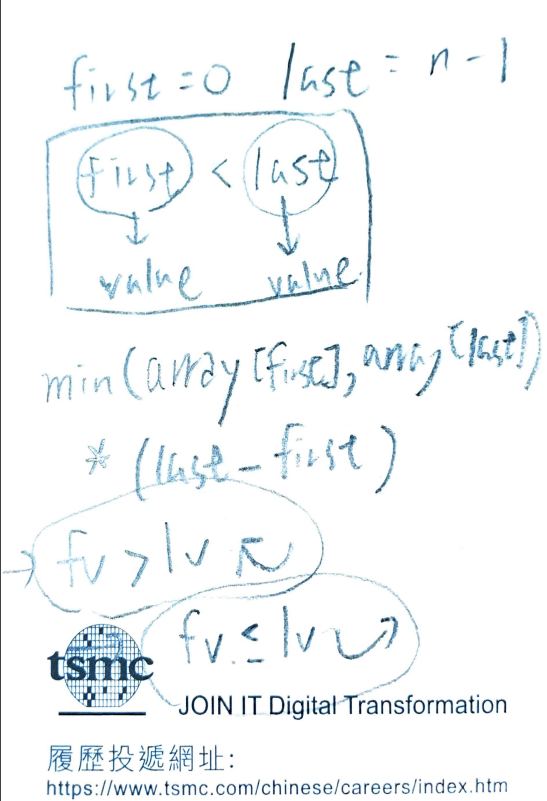 first = 0   last = n - 1
first < last
↓ ↓
value   value
min(array[first], array[last])
* (last - first)
→ fv > lv ↖
fv ≤ lv ↗
tsmc
JOIN IT Digital Transformation
履歷投遞網址:
https://www.tsmc.com/chinese/careers/index.htm